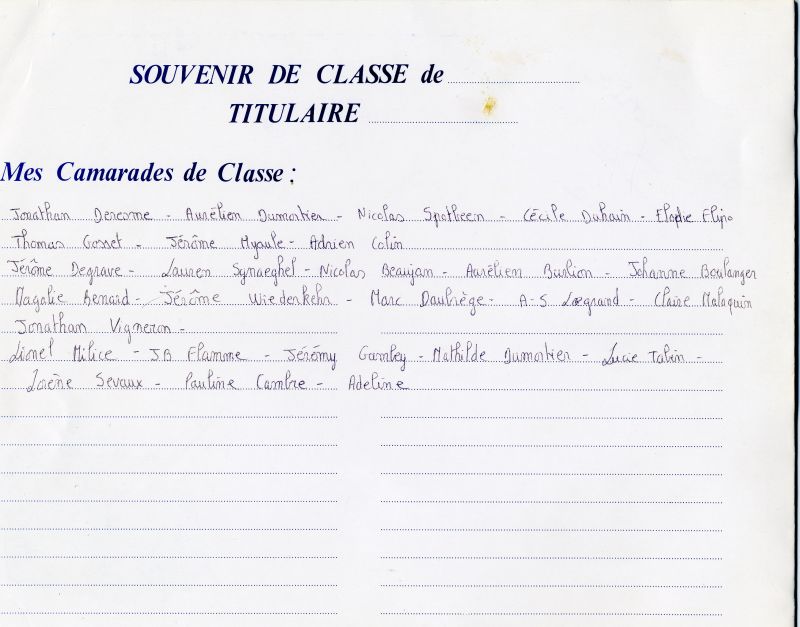 SOUVENIR DE CLASSE de
TITULAIRE
Mes Camarades de Classe :
Jonathan Descorne - Aurélien Dumortier - Nicolas - Cécile Duhain - Elodie Flipo
Thomas Gosset - Jérôme - Adrien Colin
Jérôme Degrave - Lauren Synaeghel - Nicolas Beaujan - Aurélien Burlion - Johanne Boulanger
Magalie Benard - Jérôme Wiedenkehr - Marc - A-S Legrand - Claire Malaquin
Jonathan Vigneron -
Lionel Milice - JB Flamme - Jérémy - Mathilde Dumortier - Lucie -
Sevaux - Pauline Cambre - Adeline